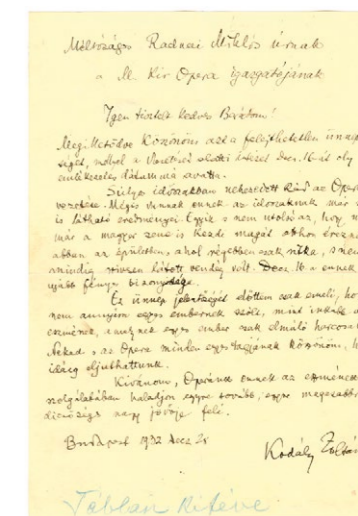 Méltóságos Radnai Miklós Úrnak
a M. Kir Opera igazgatójának
Igen tisztelt kedves Barátom!
Meg illetődve köszönöm azt a felejthetetlen ünnep
séget, mellyel a vezetésed alatti intézet decz. 16-át oly
emlékezetes dátummá avatta.
Súlyos időszakban nehezedett Rád az Opera
vezetése. Mégis vannak ennek az időszaknak már
is látható eredményei. Egyik s nem utolsó az, hogy
már a magyar zene is kezdi magát otthon érezni
abban az épületben, ahol régebben csak ritka, s nem
mindig szívesen látott vendég volt. Decz. 16 a ennek
ujabb fényes bizonysága.
Ez ünnep jelentőségét előttem csak emeli, ho
nem annyira egyes embernek szólt, mint inkább
eszmének, amelynek egyes ember csak elmuló hordozó
Neked s az Opera minden egyes tagjának köszönöm, h
idáig eljuthattunk.
Kívánom, Operánk ennek az eszmének
szolgálatában haladjon egyre tovább, egyre magasabb
dicsőséges nagy jövője felé.
Budapest 1932 decz 21.
Kodály Zoltán
Táblán kitéve